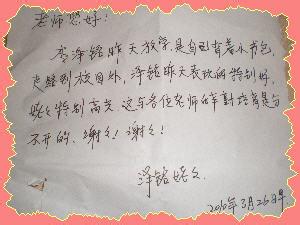 老师您好:
李泽铭昨天放学是自己背着小书包,
走路到校门外,泽铭昨天表现的特别好,
姥姥特别高兴 这与各位老师的辛勤培育是分
不开的,谢谢!谢谢!
泽铭姥姥
2016年3月26日早